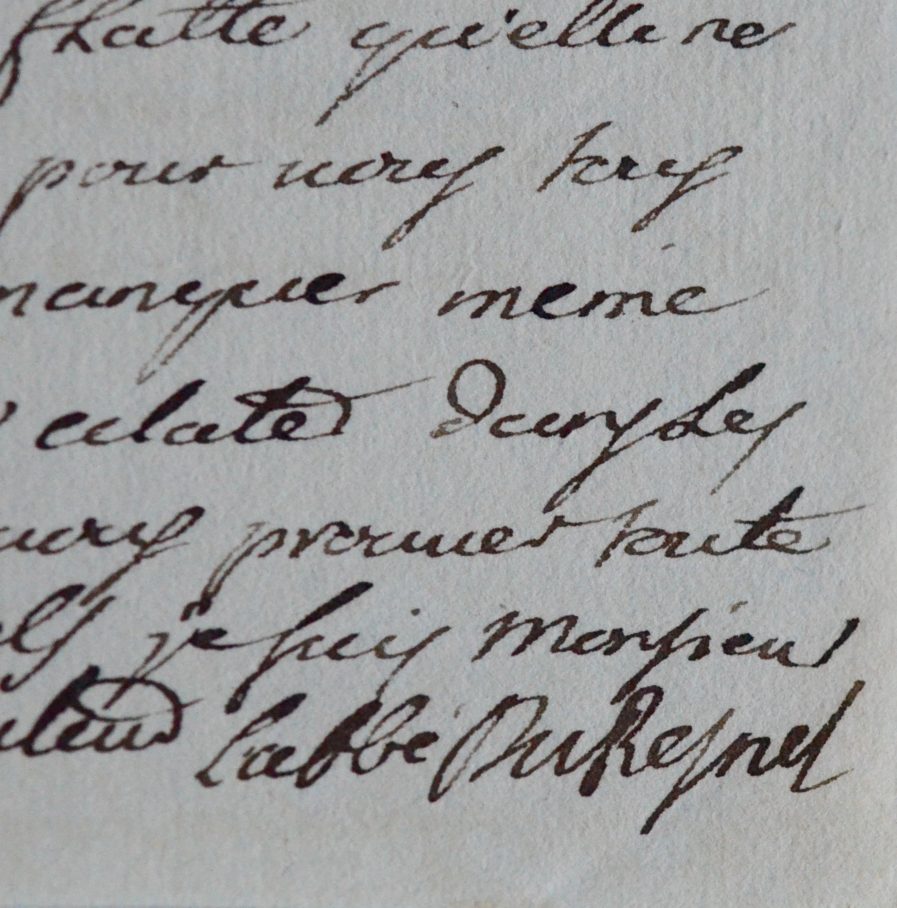 flatte qu'elle ne
pour vous tous
manquer meme
eclater dans les
vous prouver toute
je suis monsieur
l'abbé Du Resnel